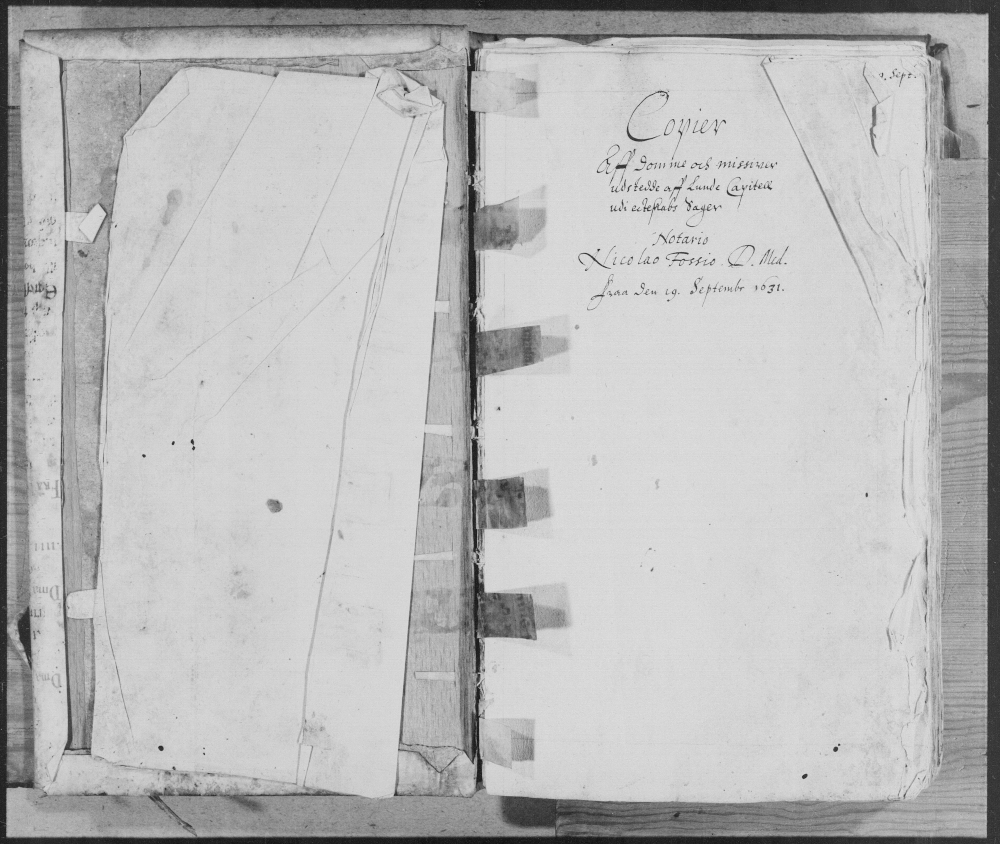 1. Sept.
Copier
Aff Domme och missiver
udstedde aff Lunde Capitell
udi ecteskabs Sager
Notario
Nicolao Fossio. D. Med.
fraa den 19. Septembr 1631.